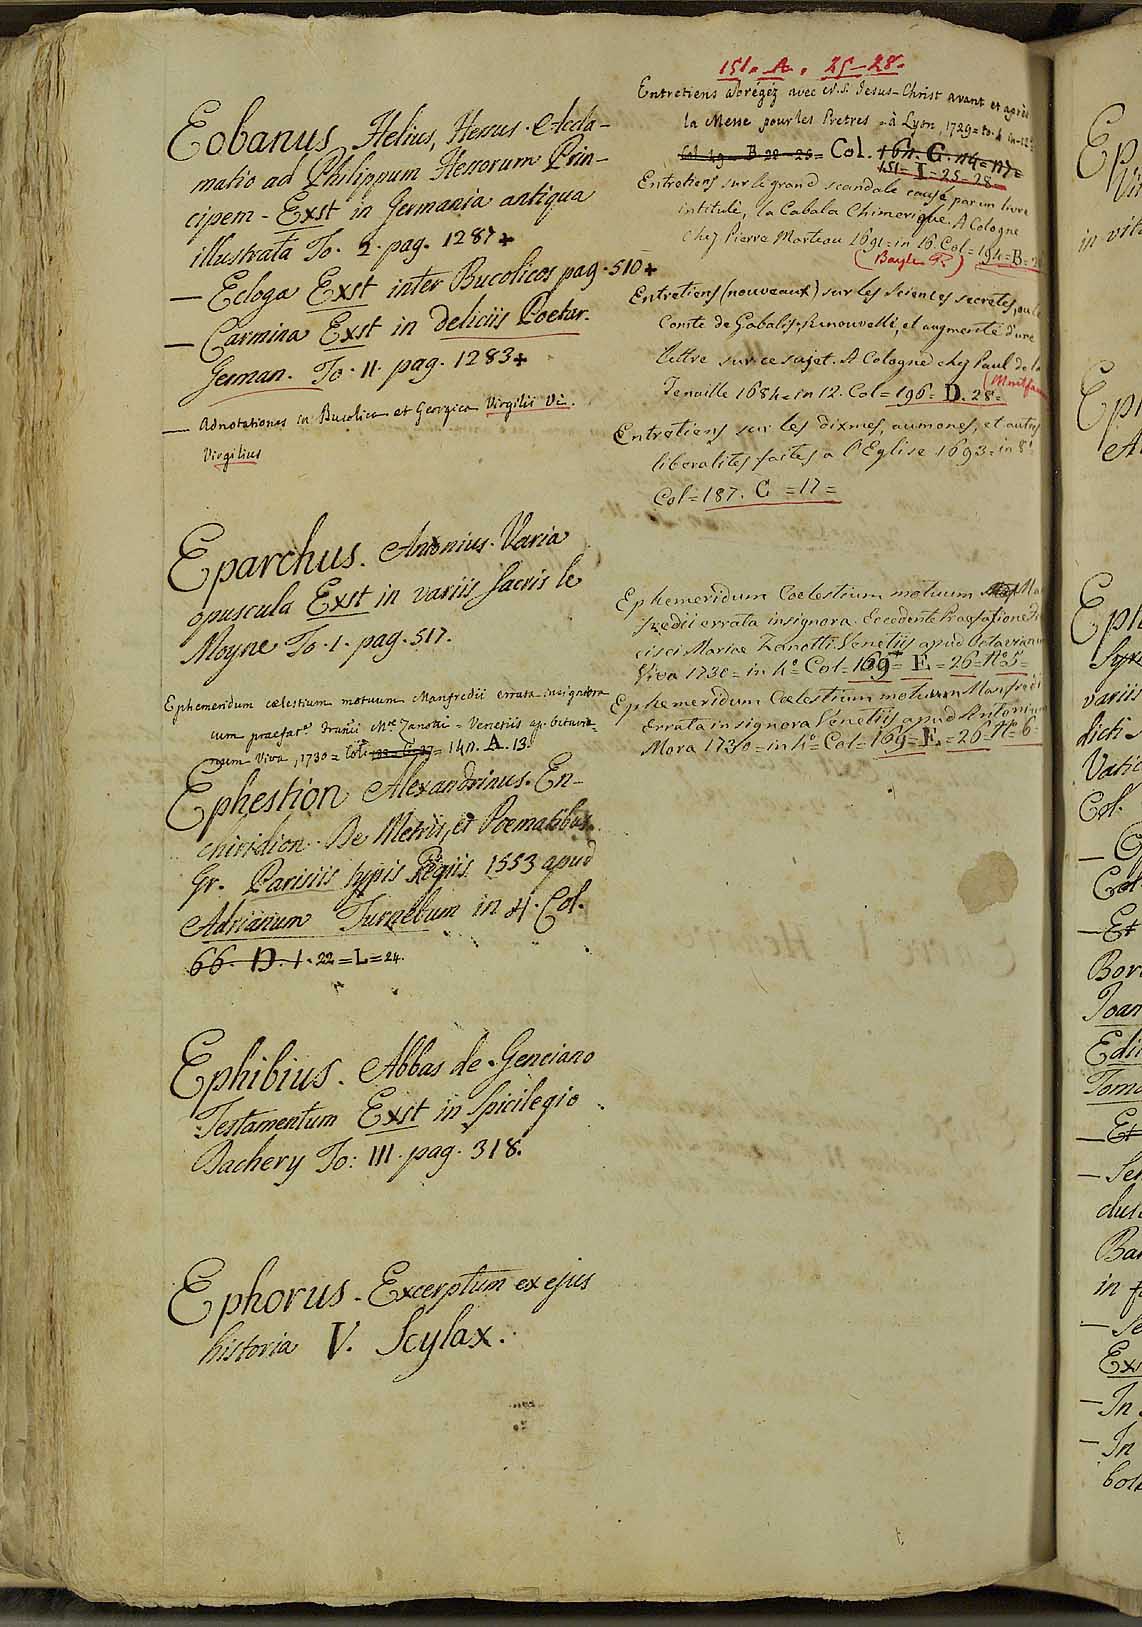 Eobanus Helius, Hessus. Accla-
matio ad Philippum Hessorum Prin-
cipem - Exst in Germania antiqua
illustrata To. 2. pag. 1287+
— Ecloga Exst inter Bucolicos pag. 510+
— Carmina Exst in deliciis Poetar.
German. To. II. pag. 1283+
— Adnotationes in Bucolica et Georgica Virgilii Vi.
Virgilius
Eparchus. Antonius. Varia
opuscula Exst in variis sacris le
Moyne To. 1. pag. 517.
Ephemeridum cœlestium motuum Manfredii errata insigniora
cum praefat.e Franci M.ae Zanotti = Venetiis ap.
Viva, 1730 = Col. 140. A. 13.
Ephestion Alexandrinus. En-
chiridion. De Metris, et Poematibus.
Gr. Parisiis typis Regiis 1553 apud
Adrianum Turnebum in 4. Col.
66. D. 1. 22 = L = 24.
Ephibius. Abbas de Genciano
Testamentum Exst in Spicilegio
Dachery To: III. pag. 318.
Ephorus. Excerptum ex ejus
historia V. Scylax.
151. A. 25-28.
Entretiens abrégéz avec N.S. Jesus-Christ avant et après
la Messe pour les Pretres = à Lyon, 1729 = to. 4 in-12
Col. 49 = B 22-26 = Col. 164. G. 114 = 117 =
151 = I - 25 - 28 -
Entretiens sur le grand scandale causé par un livre
intitulé, la Cabala Chimerique. A Cologne
chez Pierre Marteau 1691 = in 16. Col = 194 = B =
(Bayle P.)
Entretiens (nouveaux) sur les Sciences secretes, ou le
Comte de Gabalis, renouvellé, et augmenté d'une
lettre sur ce sujet. A Cologne chez Paul de la
Tenaille 1684 = in 12. Col = 196 = D. 28 =
Entretiens sur les dixmes, aumones, et autres
liberalites faites a l'Eglise 1693 = in 8.
Col = 187. C = 17 =
Ephemeridum Cœlestium motuum
fredii errata insignora. Eccedente Praefatione
cisci Mariae Zanotti Venetiis apud Octavianum
Viva 1730 = in 4.o Col = 169 = E = 26 = N.o 5 =
Ephemeridum Cœlestium motuum Manfredi
Errata insignora Venetiis apud Antonium
Mora 1730 = in 4.o Col = 169 = E. = 26 = N.o 6 =